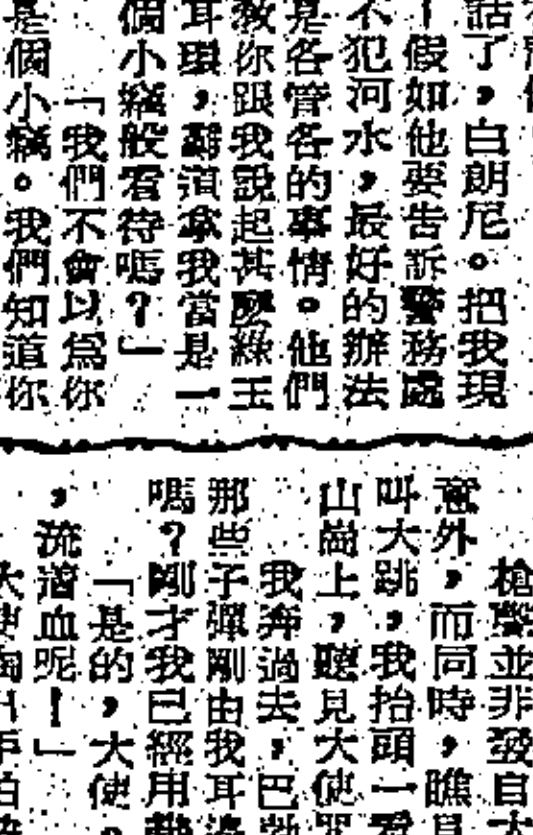 話了，白朗尼。把我現
假如他要告訴警務處
不犯河水，最好的辦法
是各管各的事情。他們
教你跟我說起甚麼綠玉
耳環，難道拿我當是一
個小竊般看待嗎？」
「我們不會以爲你
是個小竊。我們知道你
槍聲並非發自大
意外，而同時，瞧見
叫大跳，我抬頭一看
山崗上，聽見大使
我奔過去，巴勃
那些子彈剛由我耳邊
嗎？剛才我已經用
「是的，大使。
，流着血呢！」